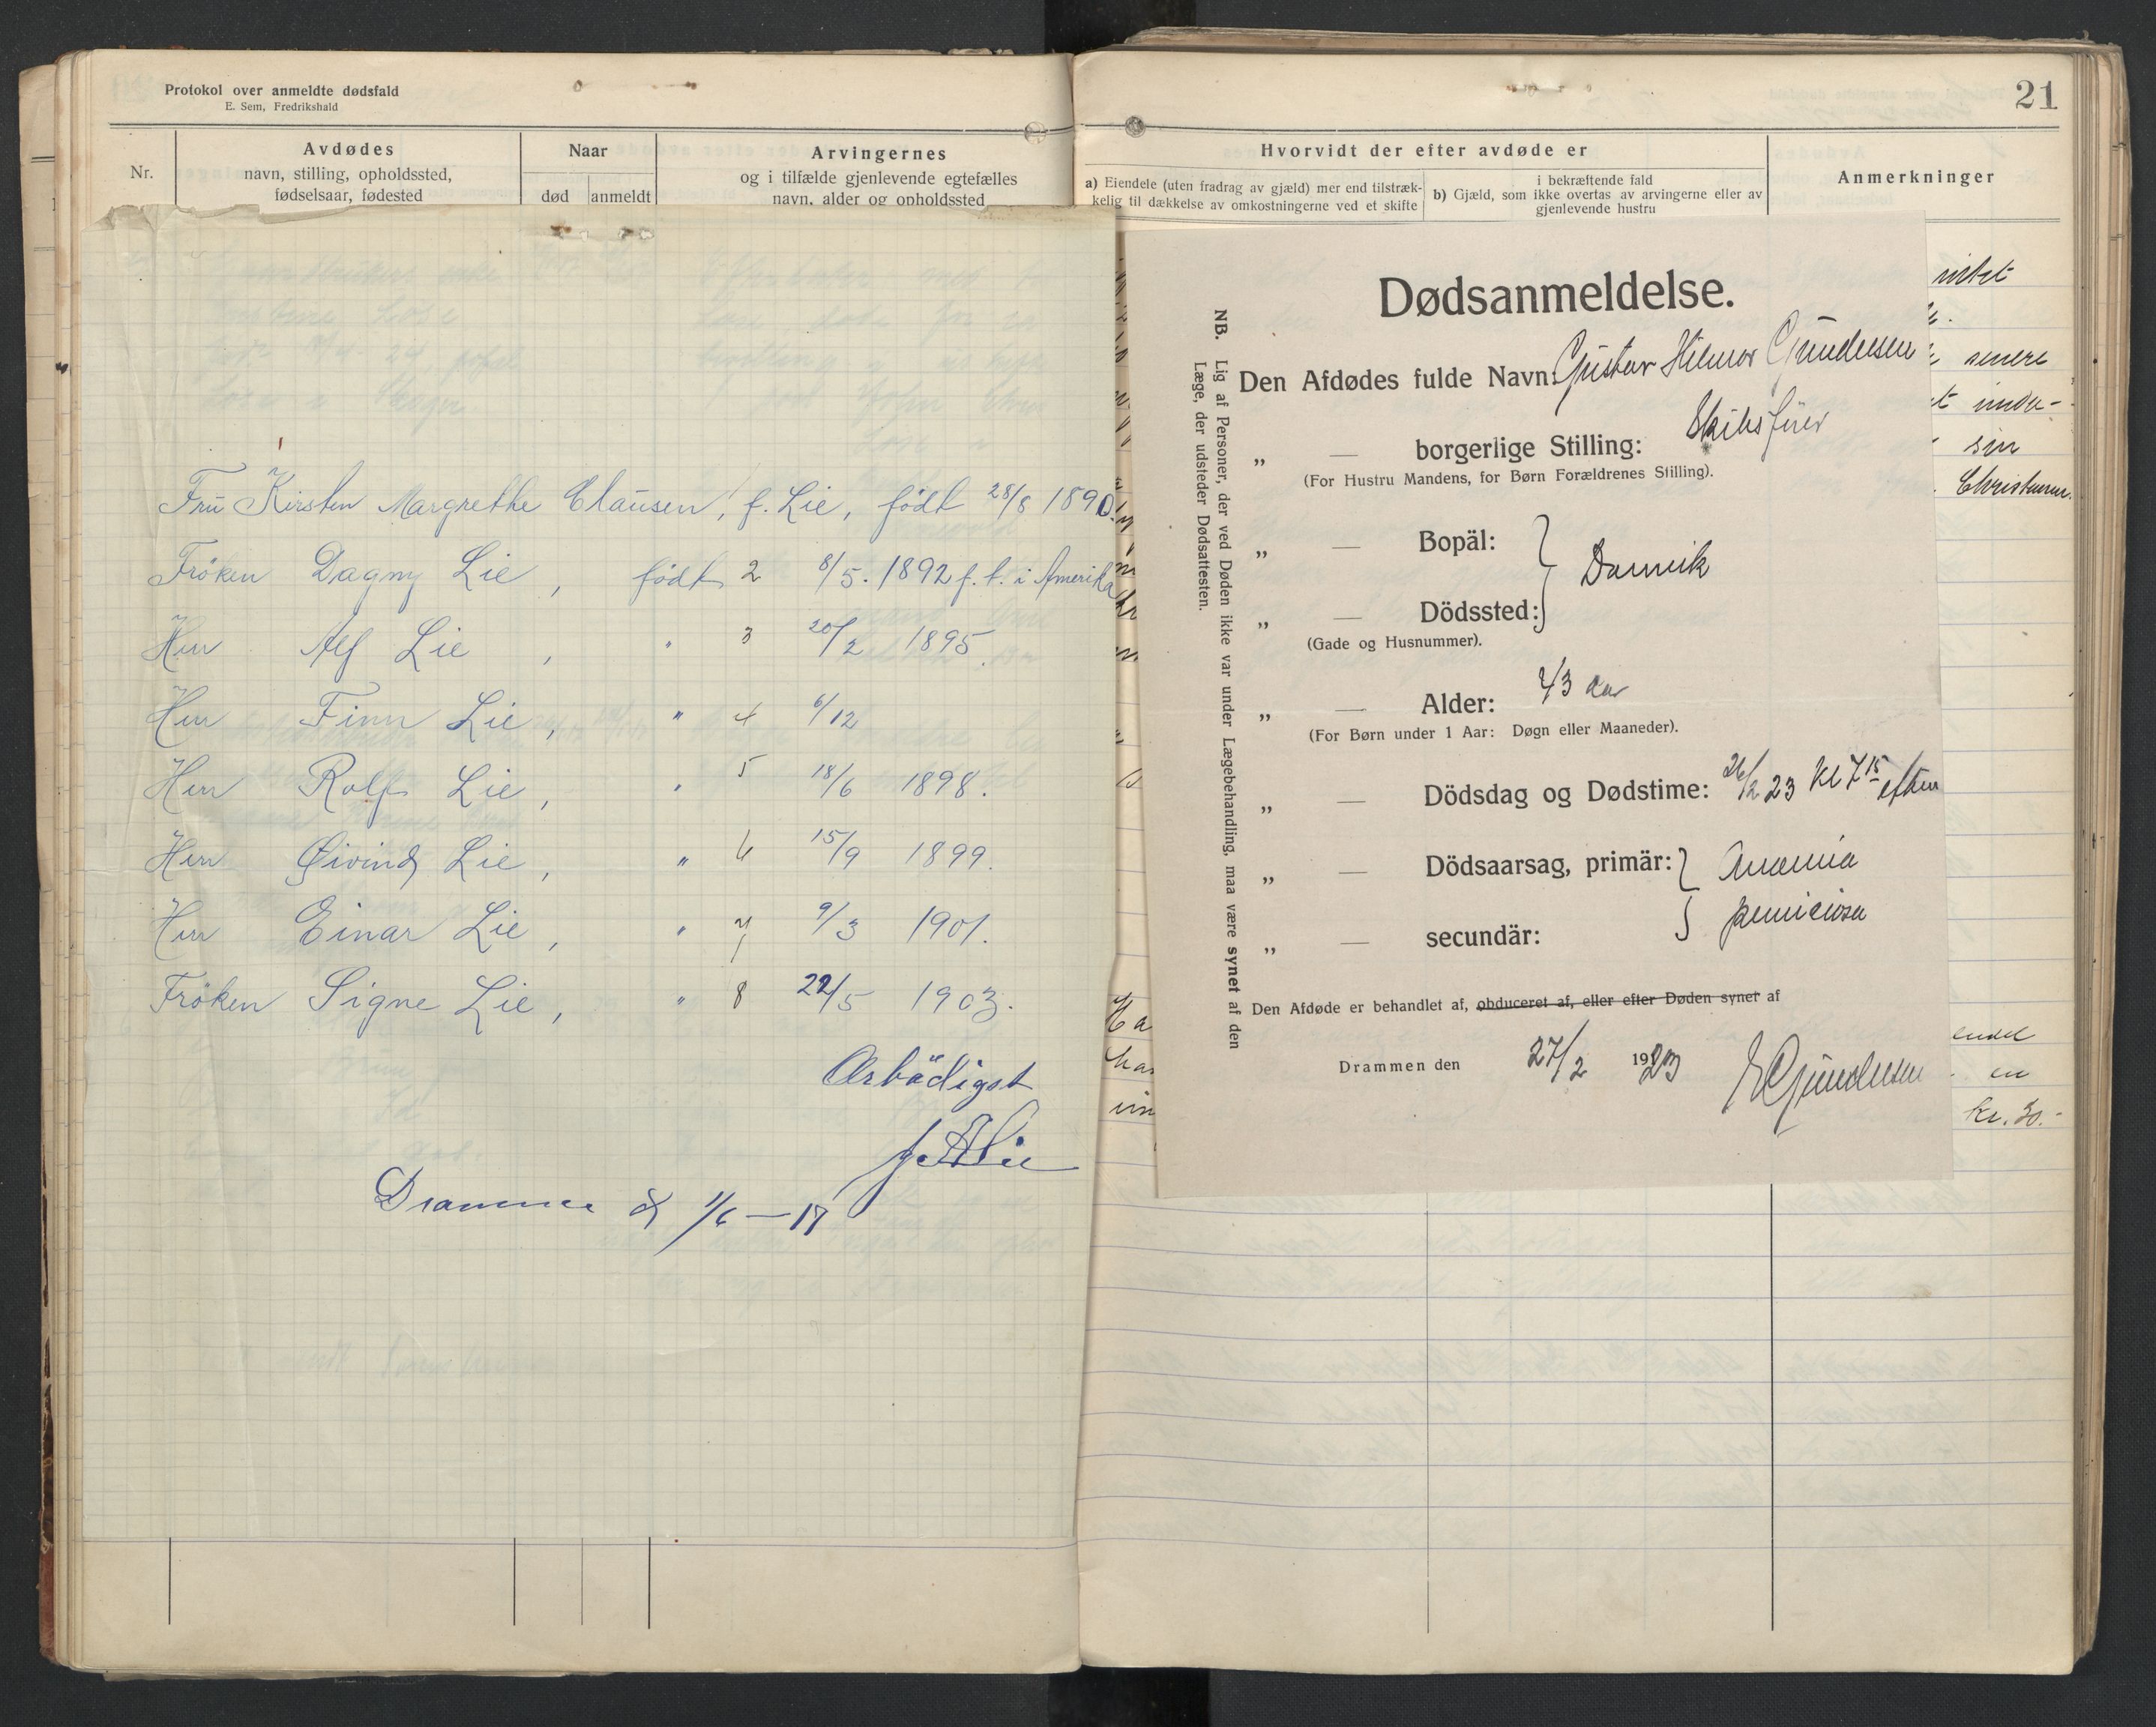 Protokol over anmeldte dødsfald
E. Sem, Fredrikshald
Nr.
Avdødes
navn, stilling, opholdssted,
fødselsaar, fødested
Naar
død
anmeldt
Arvingernes
og i tilfælde gjenlevende egtefælles
navn, alder og opholdssted
Fru Kirsten Margrethe Clausen, f. Lie, født 28/8 1890.
Fröken Dagny Lie, født 2 8/5. 1892 f. t. i Amerika
Herr Alf Lie, " 3 20/2 1895.
Herr Finn Lie, " 4 6/12
Herr Rolf Lie, " 5 18/6 1898.
Herr Øivind Lie, " 6 15/9 1899.
Herr Einar Lie, " 7 9/3 1901.
Fröken Signe Lie, " 8 22/5 1903.
Ærbödigst
Drammen d 1/6 – 17
21
Hvorvidt der efter avdøde er
a) Eiendele (uten fradrag av gjæld) mer end tilstræk-
kelig til dækkelse av omkostningerne ved et skifte
b) Gjæld, som
i bekræftende fald
ikke overtas av arvingerne eller av
gjenlevende hustru
Anmerkninger
senere
sin
en
kr. 30.-
NB. Lig af Personer, der ved Døden ikke var under Lægebehandling, maa være synet af den
Læge, der udsteder Dødsattesten.
Dødsanmeldelse.
Den Afdødes fulde Navn: Gustav Hilmar Gundersen
„ — borgerlige Stilling: Skibsfører
(For Hustru Mandens, for Børn Forældrenes Stilling).
„ — Bopäl:
„ — Dödssted:
(Gade og Husnummer).
„ — Alder: 43 aar
(For Børn under 1 Aar: Døgn eller Maaneder).
„ — Dödsdag og Dødstime: 26/2 23 Kl 7 15 eftm
„ — Dödsaarsag, primär: Anæmia
„ — secundär: perniciosa
Den Afdøde er behandlet af, obduceret af, eller efter Døden synet af
Drammen den 27/2 1923
Gundersen